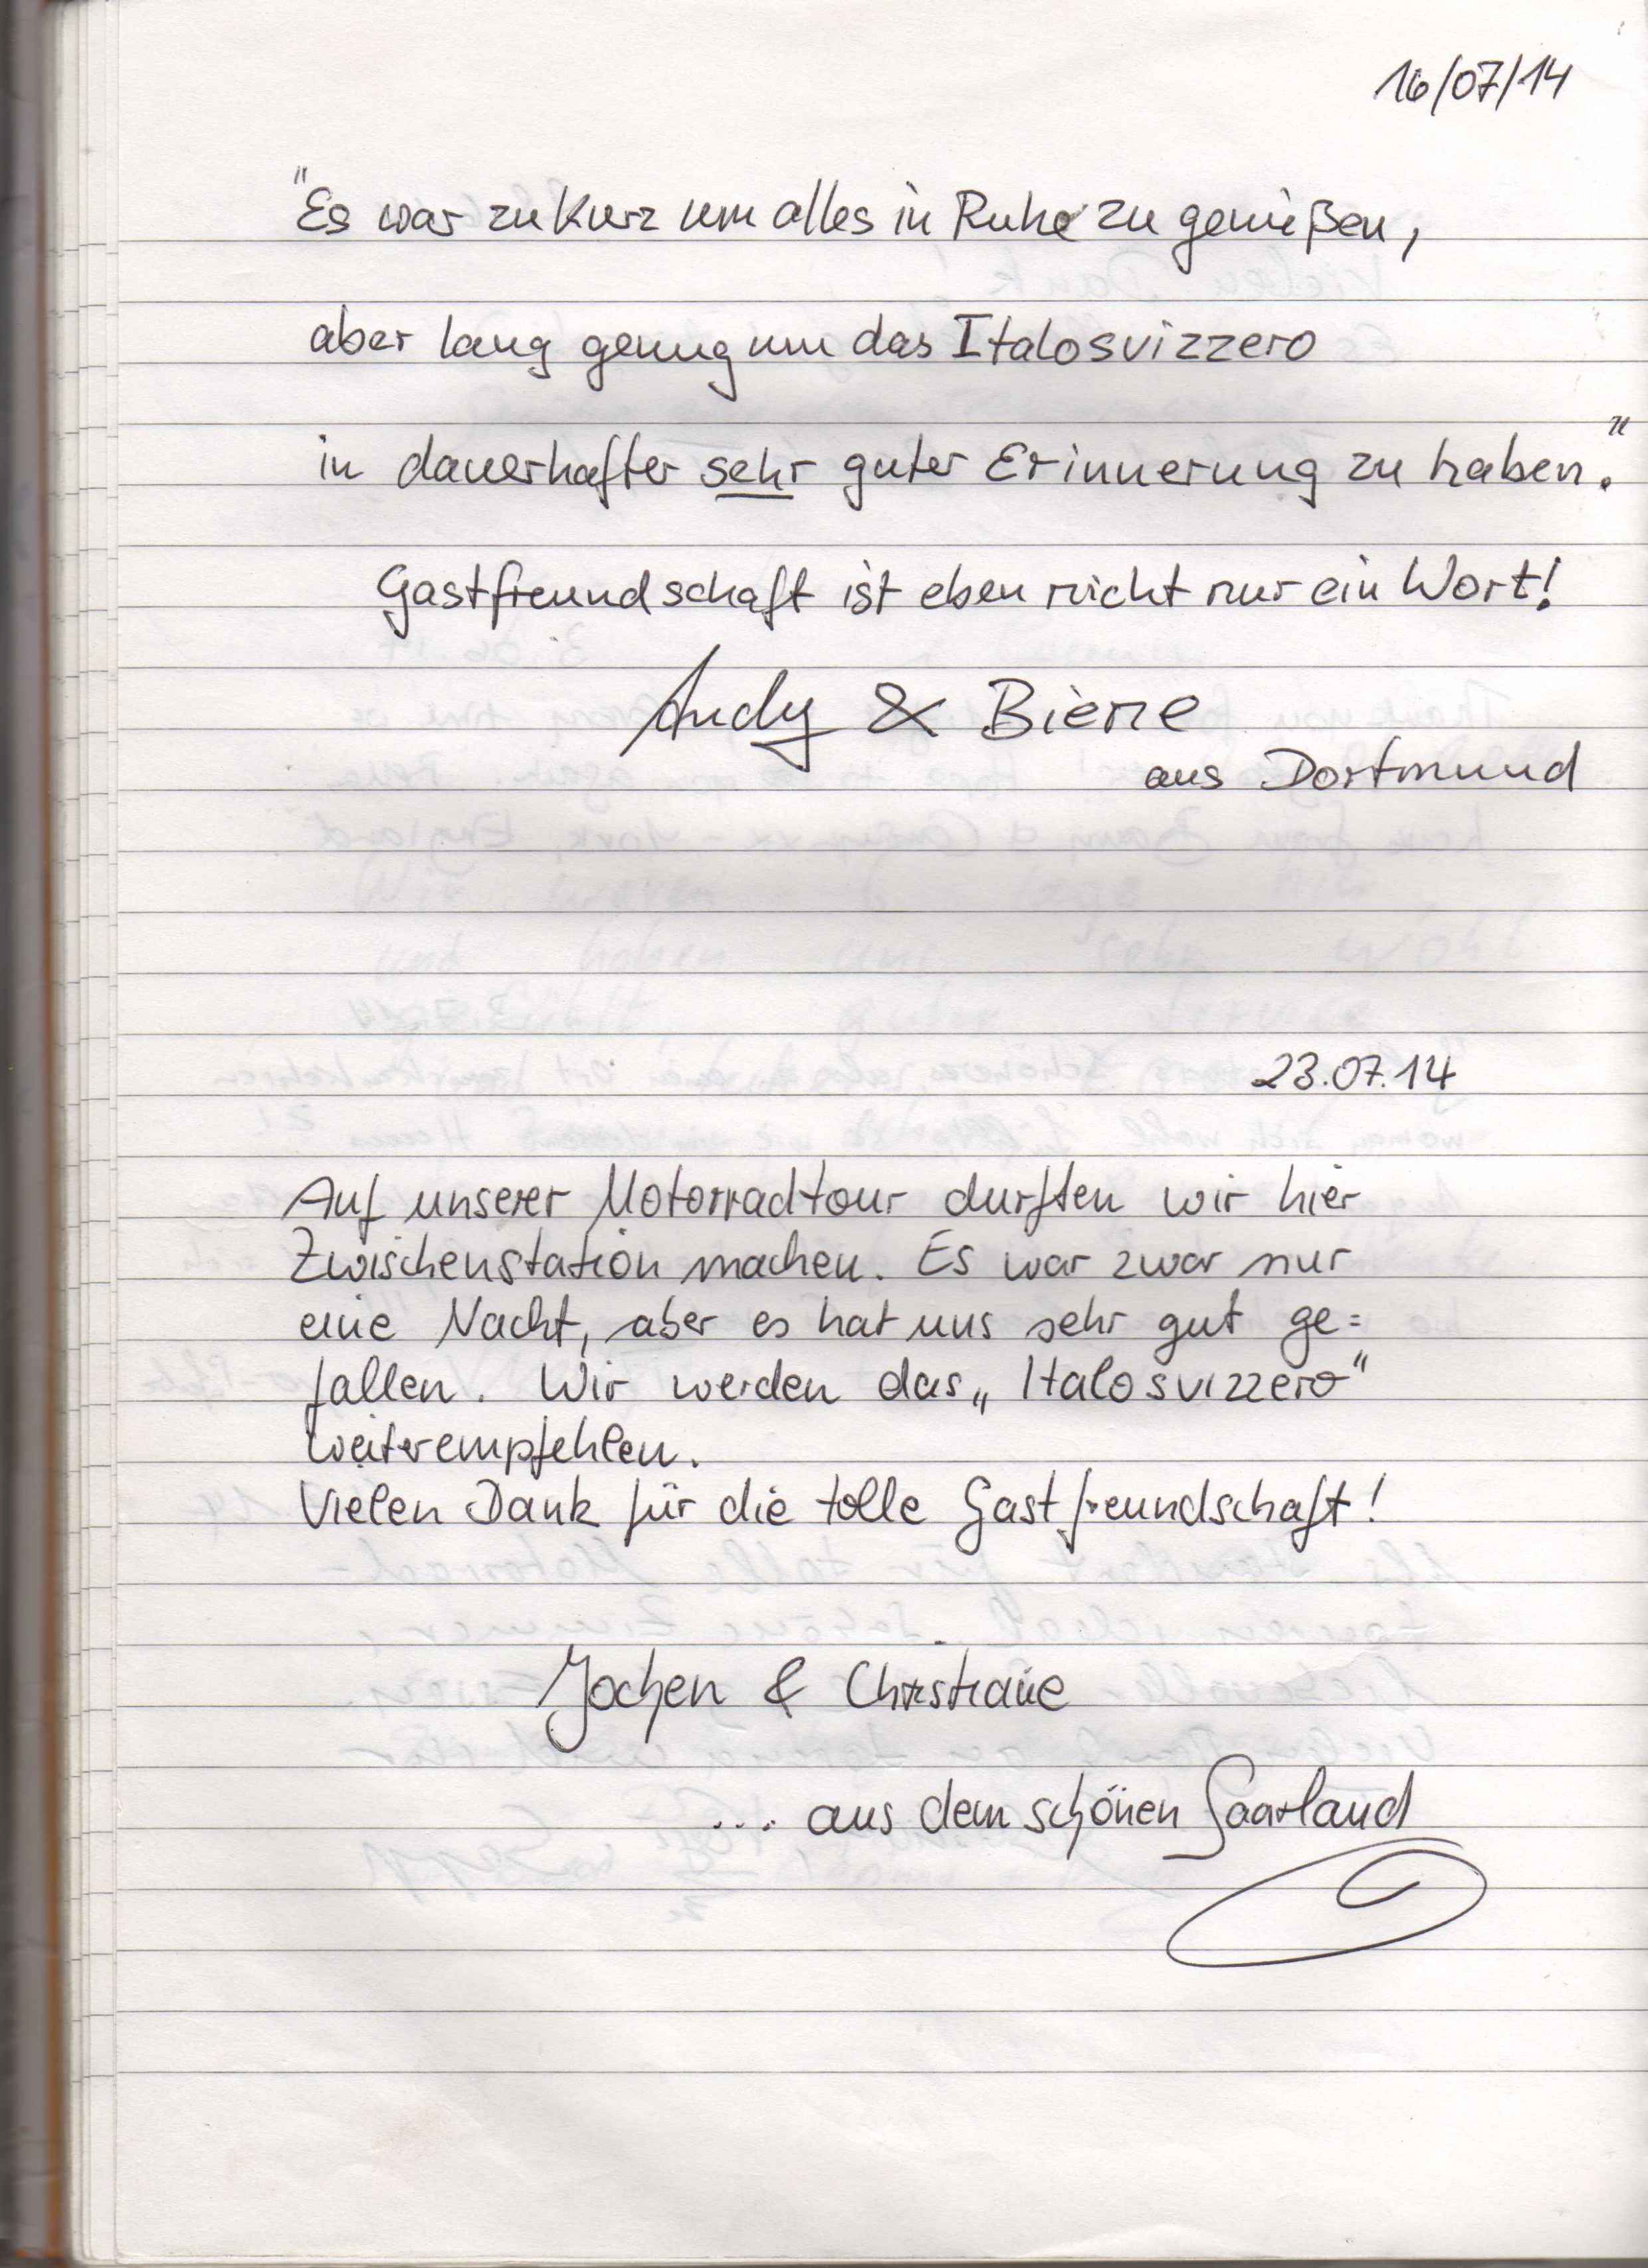 16/07/14
"Es war zu kurz um alles in Ruhe zu genießen,
aber lang genug um das Italosvizzero
in dauerhafter sehr guter Erinnerung zu haben."
Gastfreundschaft ist eben nicht nur ein Wort!
Andy & Biene
aus Dortmund
23.07.14
Auf unserer Motorradtour durften wir hier
Zwischenstation machen. Es war zwar nur
eine Nacht, aber es hat uns sehr gut ge=
fallen. Wir werden das „Italosvizzero"
weiterempfehlen.
Vielen Dank für die tolle Gastfreundschaft!
Jochen & Christiane
... aus dem schönen Saarland